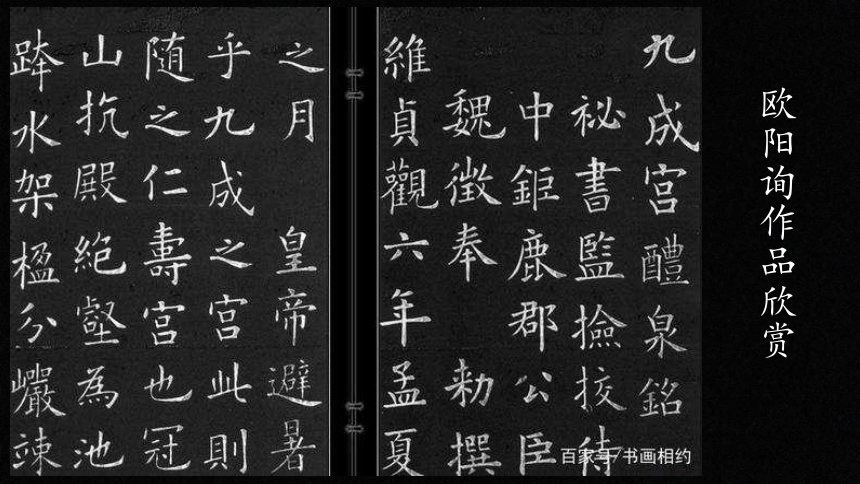 欧阳询作品欣赏
九成宮醴泉銘
祕書監撿挍侍
中鉅鹿郡公臣
魏徵奉 勑撰
維貞觀六年孟夏
之月 皇帝避暑
乎九成之宮此則
随之仁壽宮也冠
山抗殿絕壑為池
跨水架楹分巖竦
百家号/书画相约